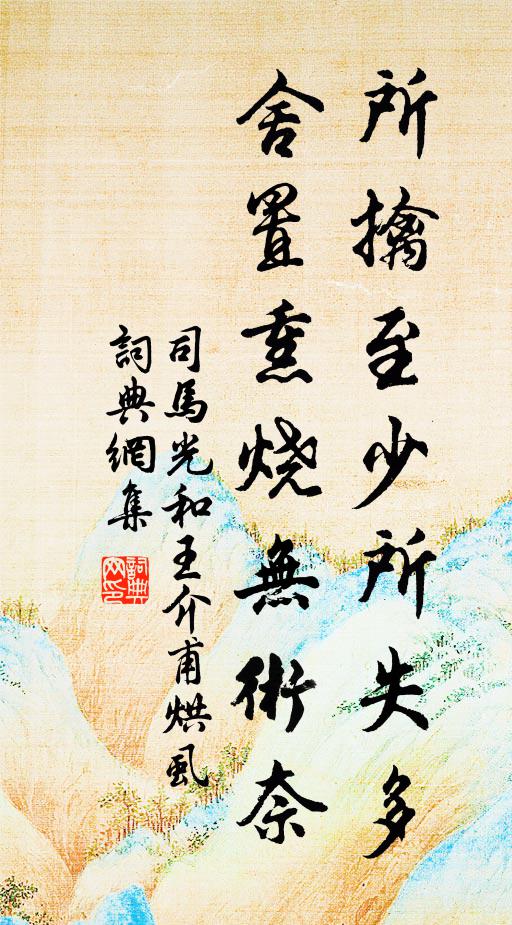 所擒至少所失多
舍置熏烧無術奈
司馬光和王介甫烘虱
詞典網集
詞典網印